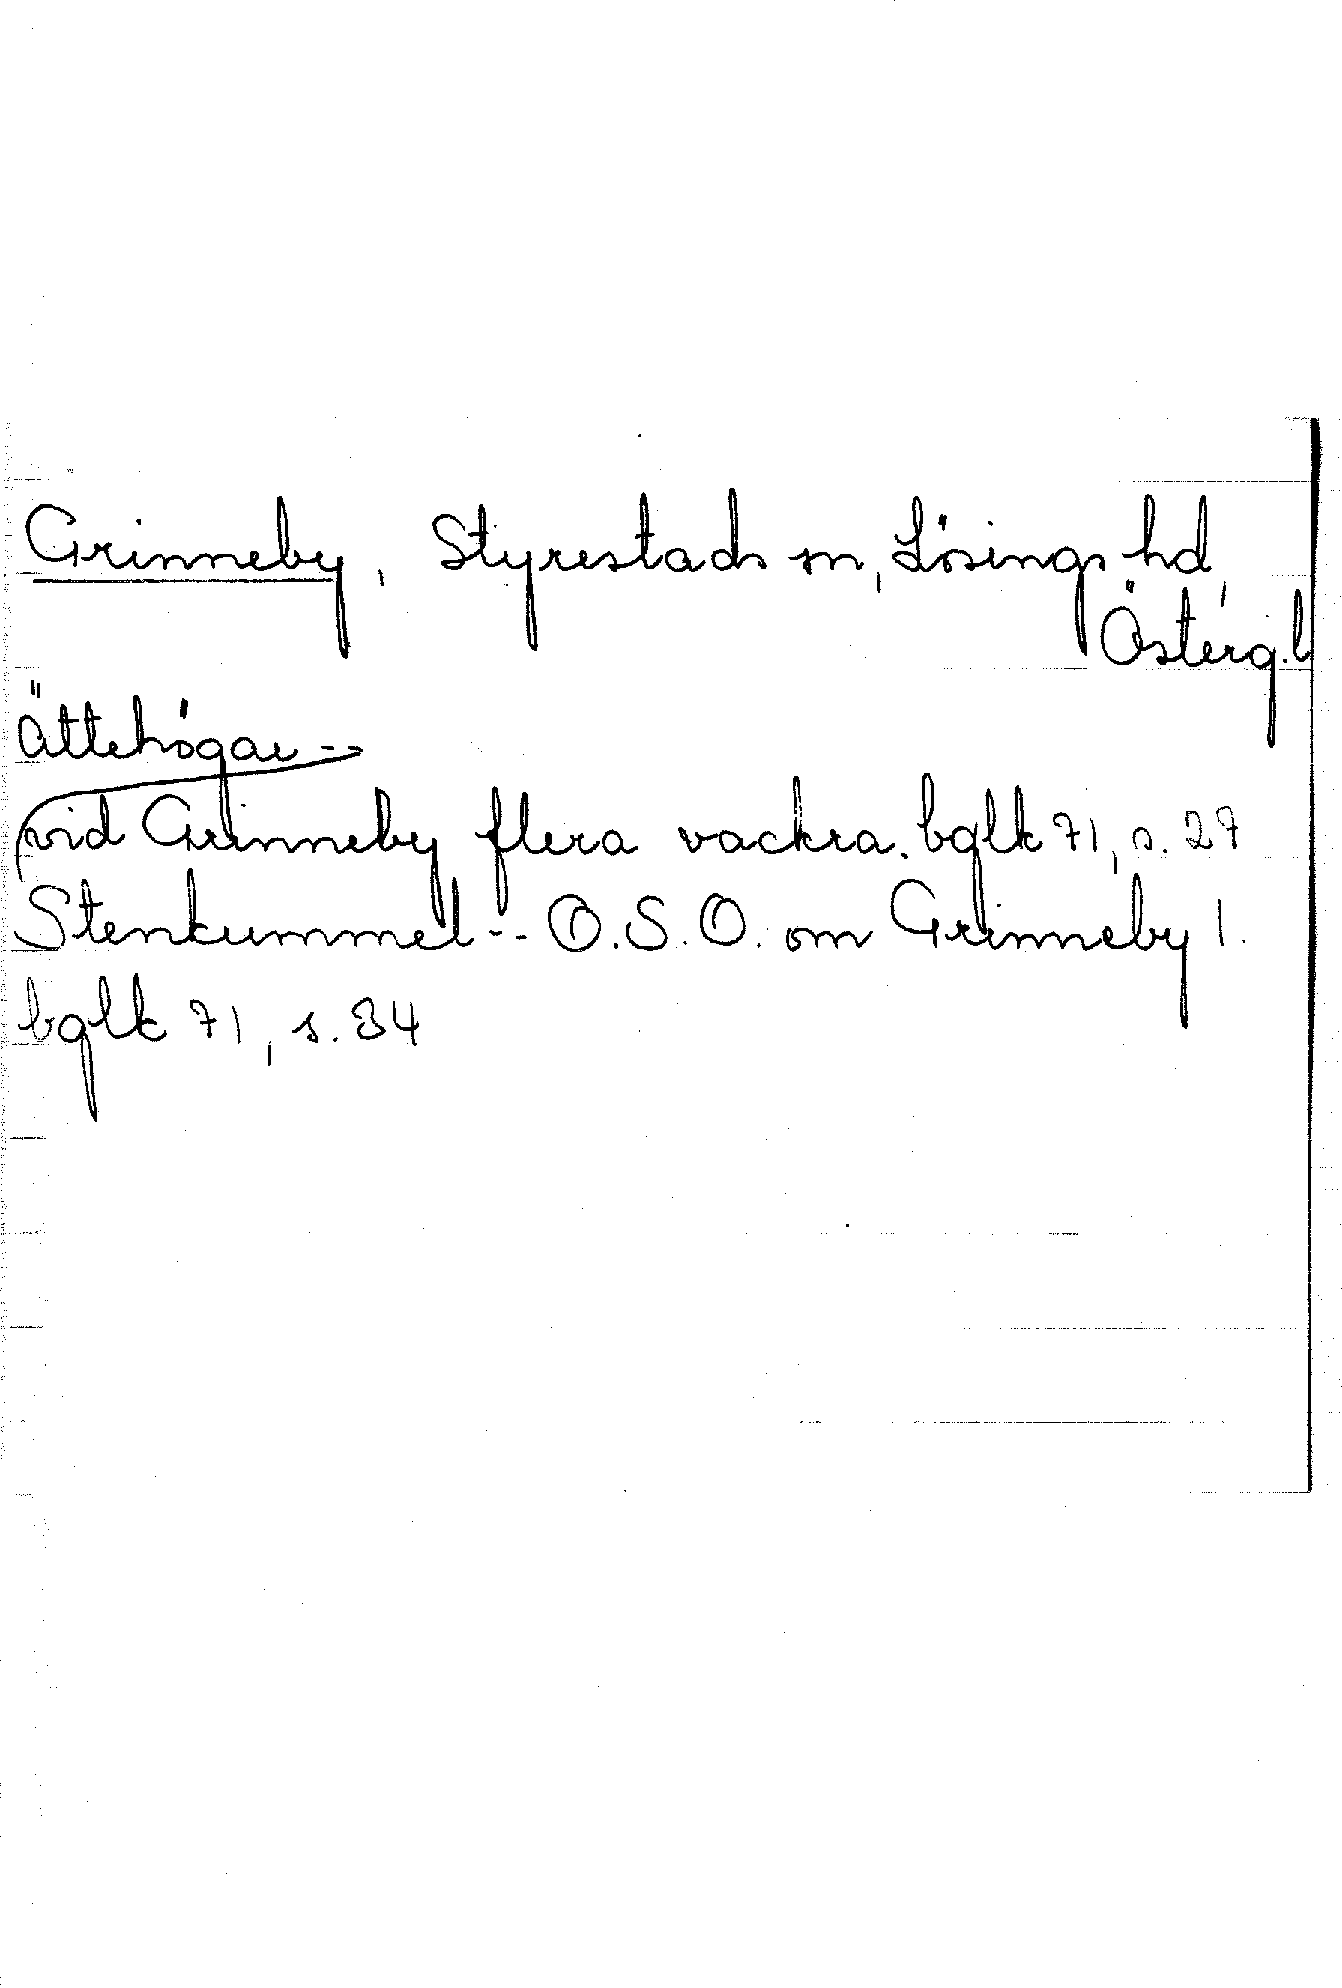 Grinneby, Styrestads sn, Lösings hd,
Österg.l
ättehögar --
vid Grinneby flera vackra. bglk 71, s. 27
Stenkummel -- O.S.O. om Grinneby 1.
bglk 71, s. 34